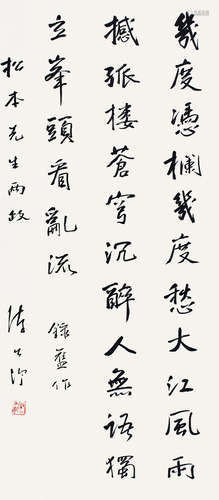 幾度憑欄幾度愁大江風雨
撼孤樓蒼穹沉醉人無語獨
立峯頭看亂流
錄舊作
松本先生兩政